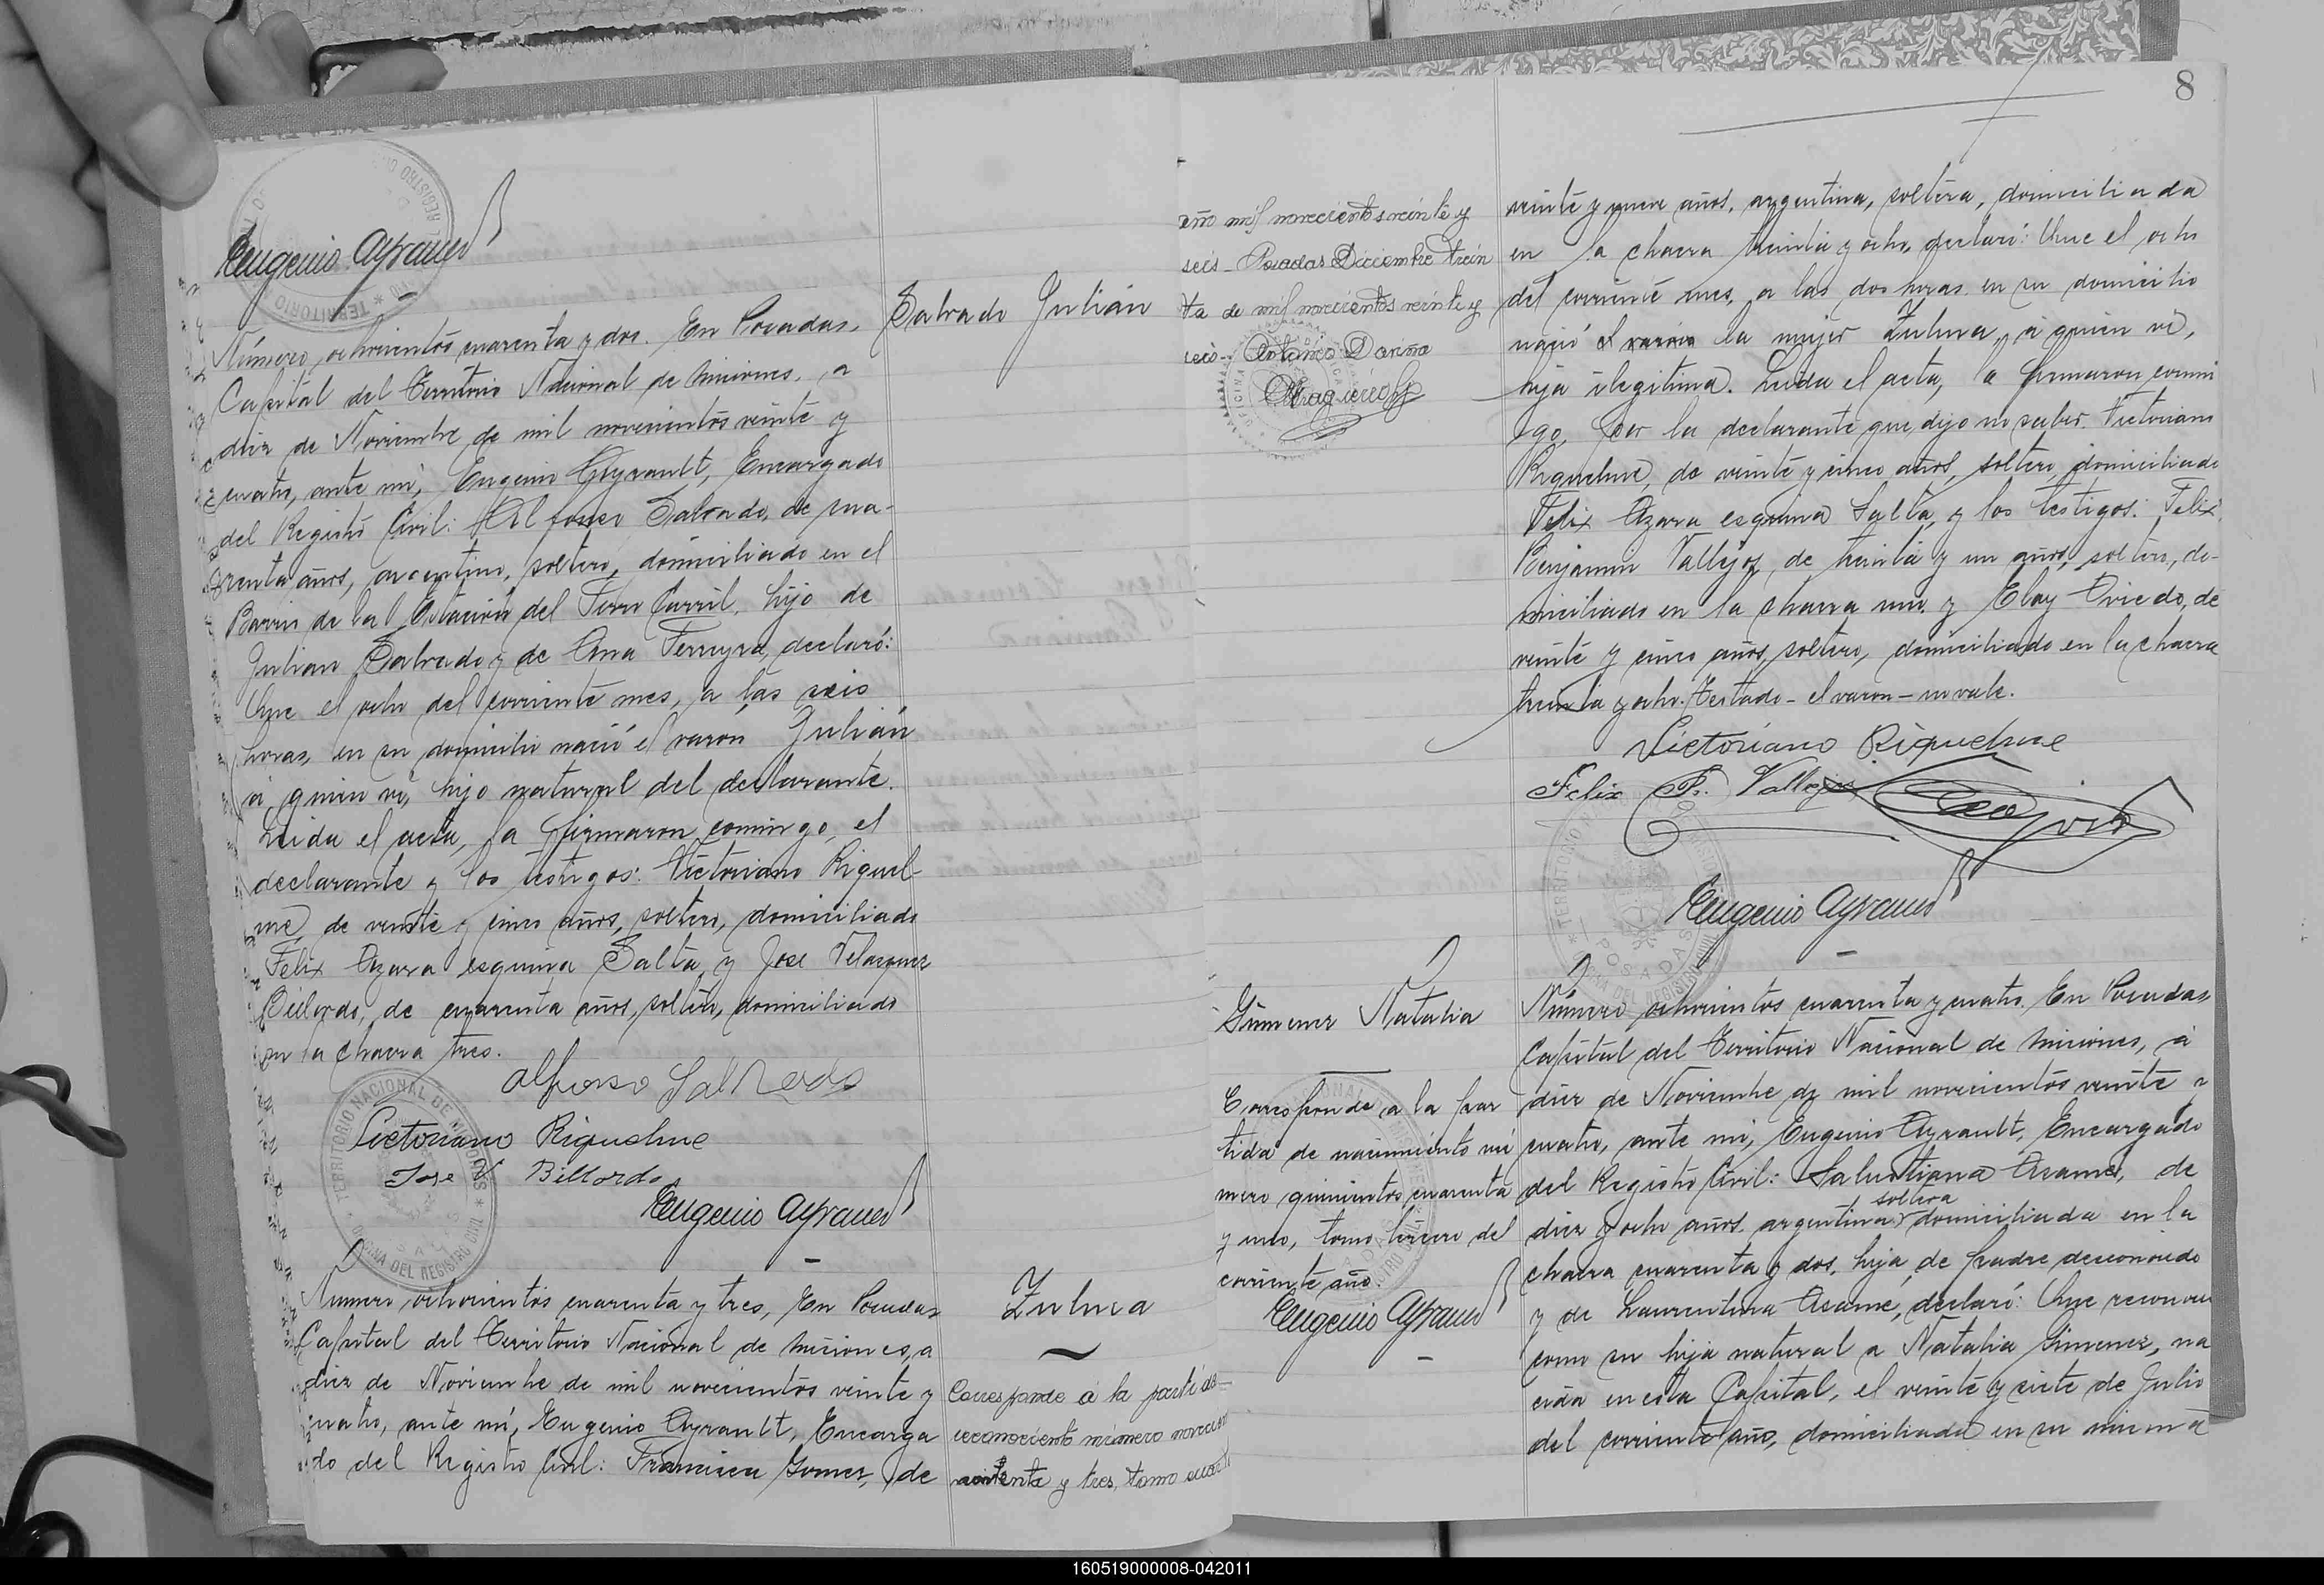 Eugenio Ayrault
Salvado Julián
Número ochocientos cuarenta y dos. En Posadas,
Capital del Territorio Nacional de Misiones, a
diez de Noviembre de mil novecientos veinte y
cuatro, ante mi, Eugenio Ayrault, Encargado
del Registro Civil: Alfonso Salvado, de cua-
renta años, argentino, soltero, domiciliado en el
Barrio de la Estación del Ferro Carril, hijo de
Julian Salvado y de Ana Ferreyra, declaró:
Que el ocho del corriente mes, a las seis
horas, en su domicilio nació el varón Julián
a quien ví, hijo natural del declarante.
Leida el acta, la firmaron comingo, el
declarante y los testigos: Victoriano Riquel-
me, de veinte y cinco años, soltero, domiciliado
Felix Azara esquina Salta, y Jose Velazquez
Billordo, de cuarenta años, soltero, domiciliado
en la chacra tres.
Alfonso Salvado
Victoriano Riquelme
Jose V. Billordo
Eugenio Ayrault
Zulma
Número ochocientos cuarenta y tres, En Posadas
Capital del Territorio Nacional de Misiones, a
diez de Noviembre de mil novecientos veinte y
cuatro, ante mí, Eugenio Ayrault, Encarga
do del Registro Civil: Francisca Gomez, de
Corresponde á la partida
reconocciento número novecien
y tres, tomo cuarto
8
año mil novecientos veinte y
seis - Posadas Diciembre trein
ta de mil novecientos veinte y
seis -
veinte y nueve años, argentina, soltera, domiciliada
en la chacra treinta y ocho, declaró: Que el ocho
del corriente mes, a las dos horas en su domicilio
nació el varón la mujer Zulma, á quien ví,
hija ilegitima. Leida el acta, la firmaron comin
go, por la declarante que dijo no saber: Victoriano
Riquelme, de veinte y cinco años, soltero, domiciliado
Felix Azara esquina Salta, y los testigos: Felix
Benjamin Vallejos, de treinta y un años, soltero, do-
miciliado en la chacra uno, y Eloy Oviedo, de
veinte y cinco años, soltero, domiciliado en la chacra
treinta y ocho. Testado - el varon - no vale.
Victoriano Riquelme
Felix B. Vallejos
Eugenio Ayrault
TERRITORIO NACIONAL DE MISIONES
OFICINA DEL REGISTRO CIVIL
POSADAS
Gimenez Natalia
Corresponde a la par
tida de nacimiento nú
mero quinientos cuarenta
y uno, tomo tercero del
corriente año.
Eugenio Ayrault
Número ochocientos cuarenta y cuatro. En Posadas,
Capital del Territorio Nacional de Misiones, á
diez de Noviembre de mil novecientos veinte y
cuatro, ante mi, Eugenio Ayrault, Encargado
del Registro Civil: Salustiana Asame, de
soltera
diez y ocho años, argentina, domiciliada en la
chacra cuarenta y dos, hija de padre desconocido
y de Laurentina Asame, declaró: Que reconoce
como su hija natural a Natalia Gimenez, na
cida en esta Capital, el veinte y siete de Julio
del corriente año, domiciliada en su misma
160519000008-042011